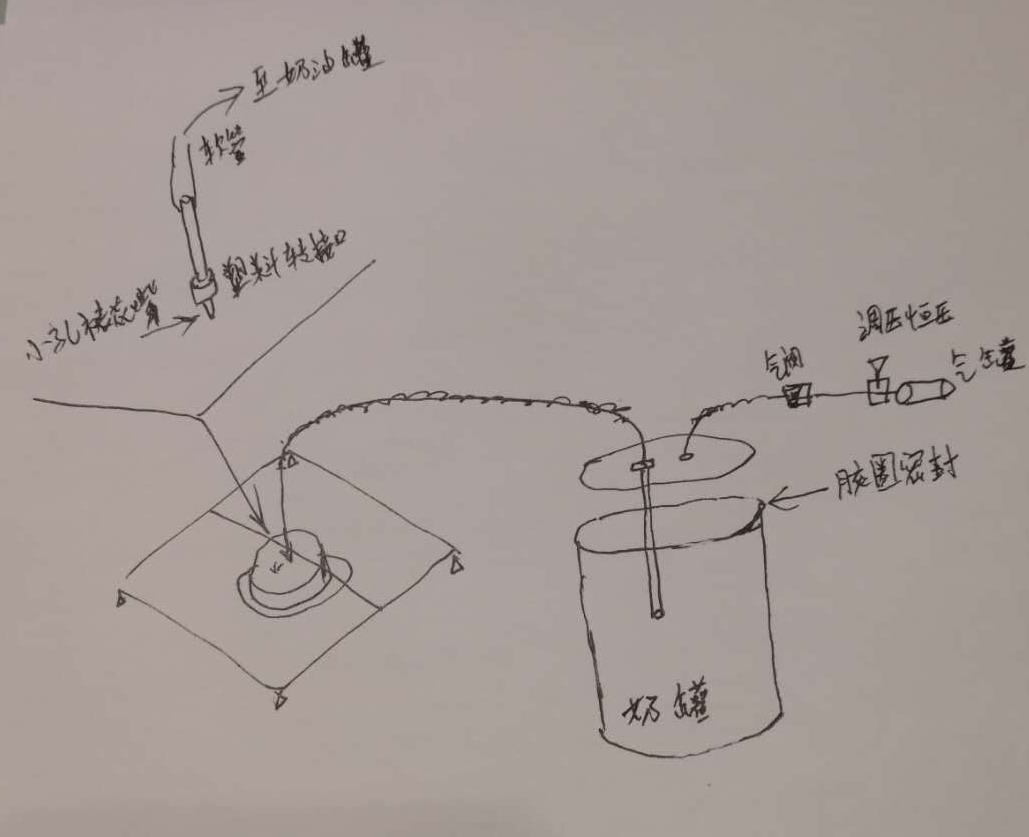 至奶油罐
软管
塑料转接口
小孔裱花嘴
调压恒压
气阀
气罐
胶圈密封
奶罐